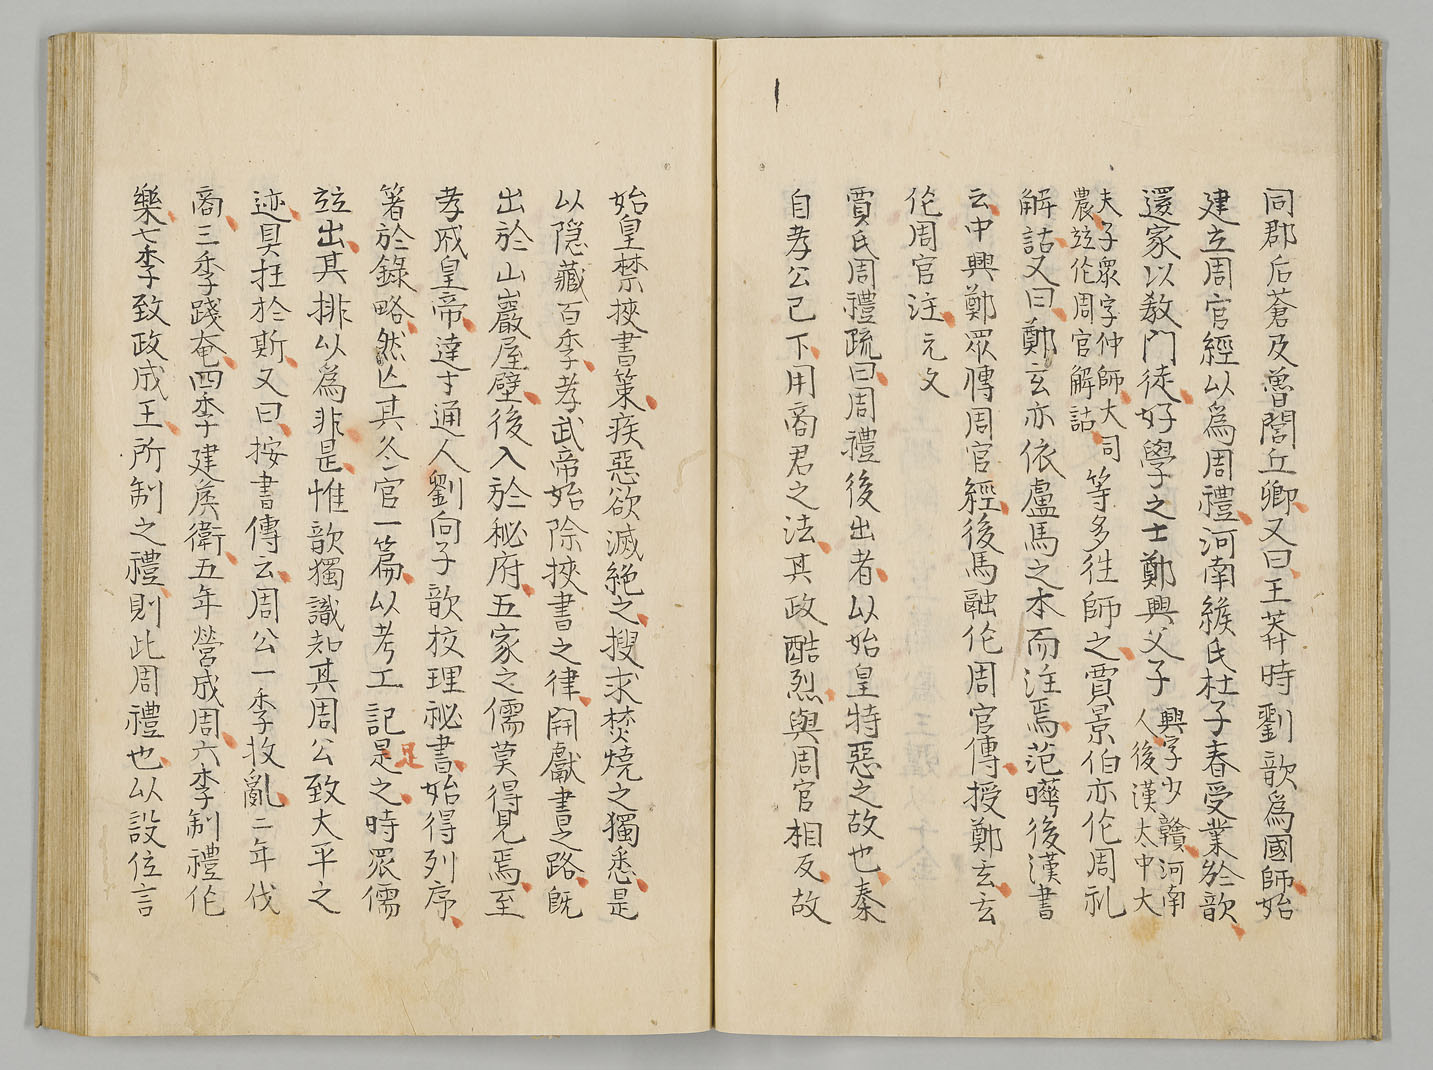 同郡后蒼及魯閭丘卿又曰王莽時劉歆為國師始
建立周官經以為周禮河南緱氏杜子春受業於歆
還家以教門徒好學之士鄭興父子興字少贛河南
人後漢太中大
夫子眾字仲師大同
農竝作周官解詁等多往師之賈景伯亦作周礼
解詁又曰鄭玄亦依盧馬之本而注焉范曄後漢書
云中興鄭眾傳周官經後馬融作周官傳授鄭玄玄
作周官注元文
賈氏周禮疏曰周禮後出者以始皇特惡之故也秦
自孝公已下用商君之法其政酷烈與周官相反故
始皇禁挾書策疾惡欲滅絕之搜求焚燒之獨悉是
以隠藏百季孝武帝始除挾書之律開獻書之路既
出於山巖屋壁後入於秘府五家之儒莫得見焉至
孝成皇帝達才通人劉向子歆校理祕書始得列序
著於錄略然亾其冬官一篇以考工記足之時眾儒
足
竝出其排以為非是惟歆獨識知其周公致大平之
迹具在於斯又曰按書傳云周公一季救亂二年伐
商三季踐奄四季建矦衛五年營成周六季制禮作
樂七季致政成王所制之禮則此周禮也以設位言